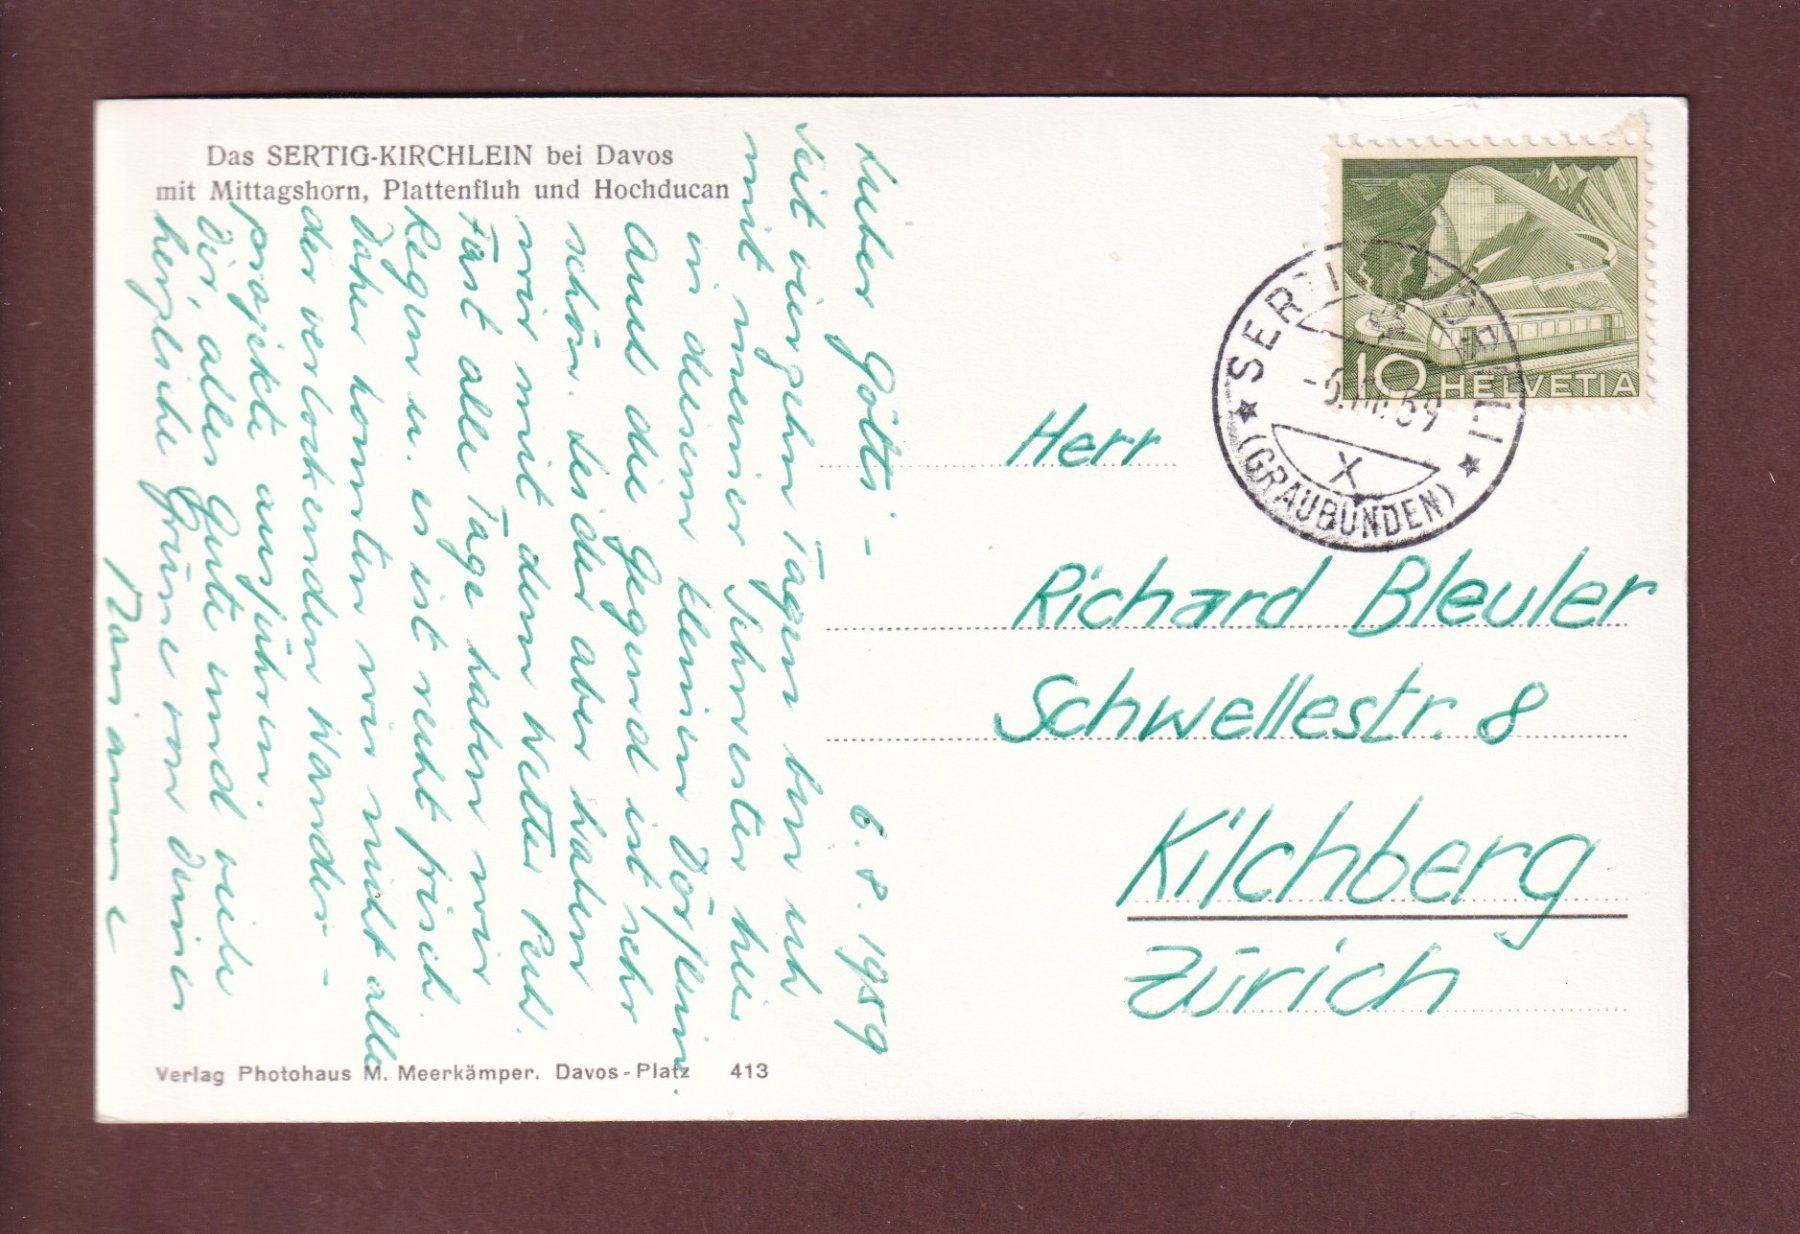 Das SERTIG-KIRCHLEIN bei Davos
mit Mittagshorn, Plattenfluh und Hochducan
6.8.1959
Lieber Götti -
Seit vierzehn Tagen bin ich
mit meiner Schwester hier
in diesem kleinen Dörflein.
Amd die Gegend ist sehr
schön. Leider aber haben
wir mit dem Wetter Pech.
Fast alle Tage haben wir
Regen u. es ist recht frisch.
Daher konnten wir nicht alle
der verlockenden Wander-
projekte ausführen.
Dir, alles Gute und viele
herzliche Grüsse von Deiner
Marianne
Verlag Photohaus M. Meerkämper. Davos-Platz 413
10 HELVETIA
SERTIG
-6.VIII.59
X
(GRAUBÜNDEN)
Herr
Richard Bleuler
Schwellestr. 8
Kilchberg
Zürich